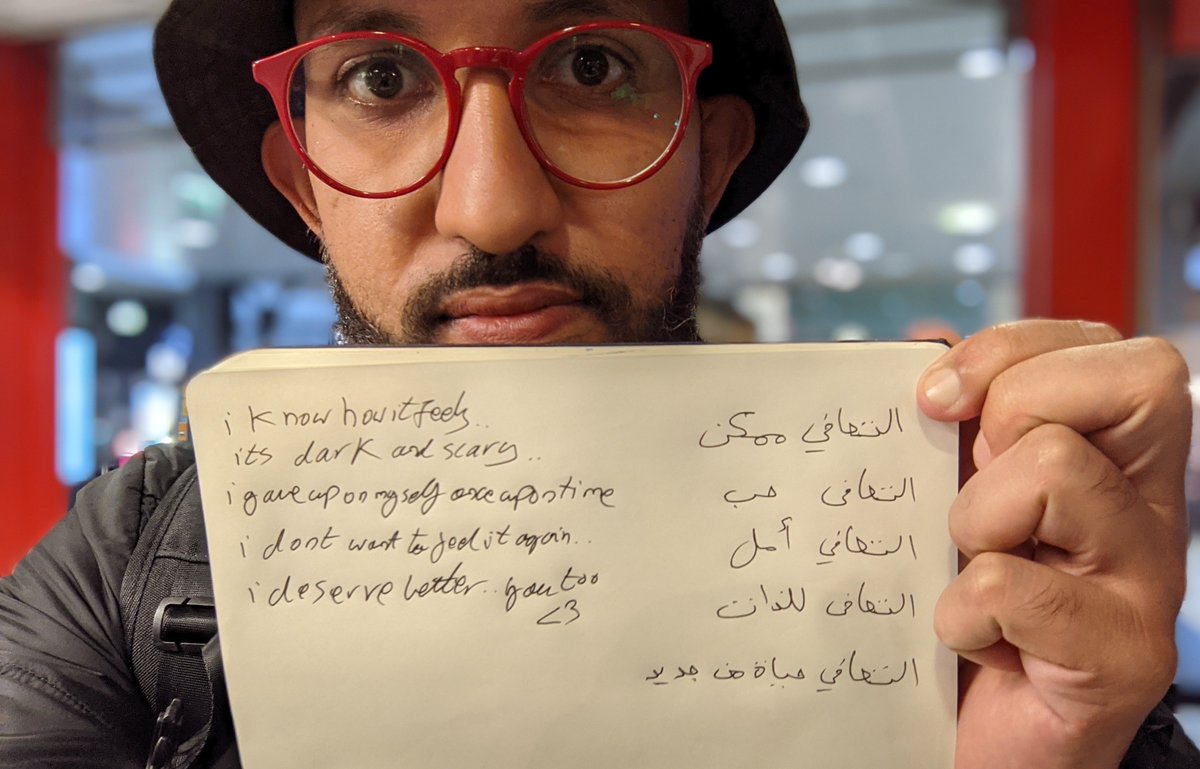 i know how it feels..
its dark and scary..
i gave up on myself once apon time
i dont want to feel it again..
i deserve better.. you too
<3
التعافي ممكن
التعافي حب
التعافي أمل
التعافي للذات
التعافي حياة من جديد